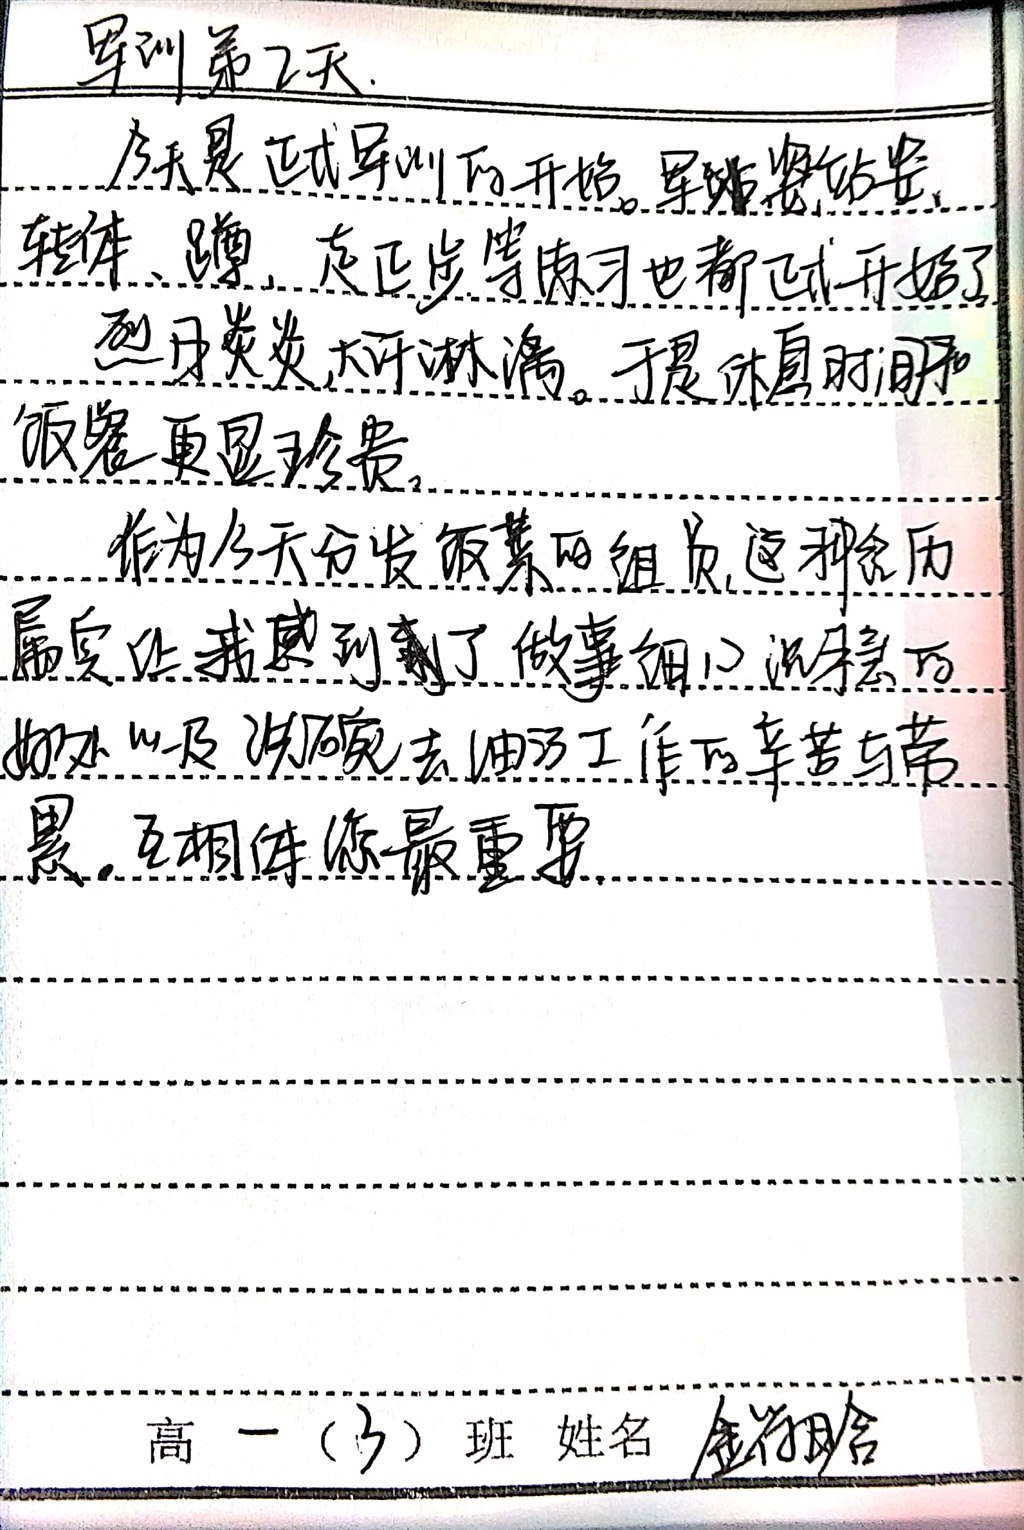 军训第2天.
今天是正式军训的开始。军姿站姿、
转体、蹲、走正步等练习也都正式开始了
烈日炎炎,大汗淋漓。于是休息时间和
饭餐更显珍贵。
作为今天分发饭菜的组员,这种经历
属实让我感到了做事细心沉稳的
好处以及洗碗去油污工作的辛苦与劳
累。互相体谅最重要.
高一(3)班 姓名 金